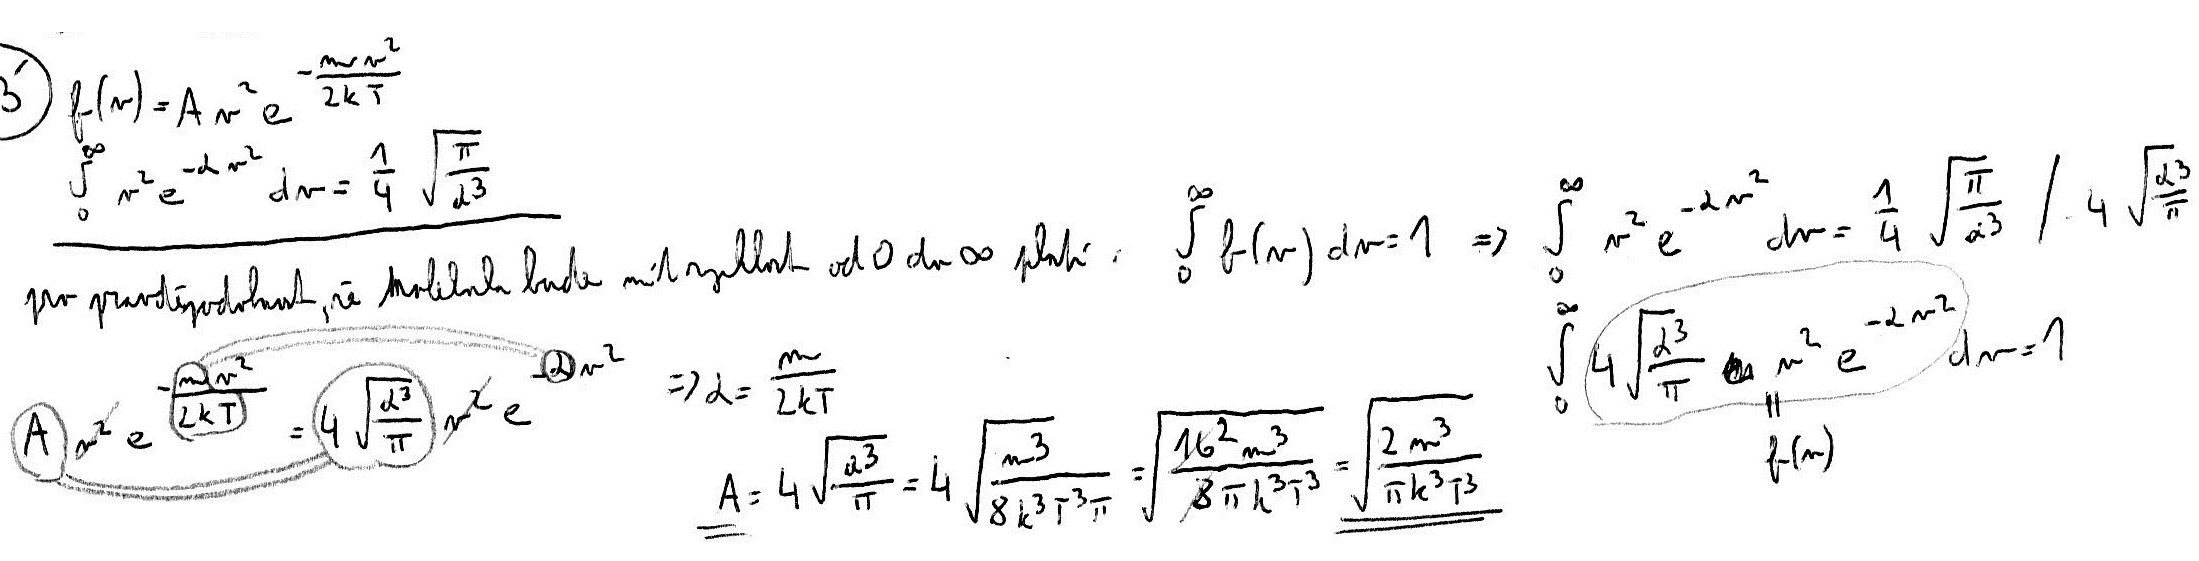 3) f(v) = A v² e^{-\frac{m v²}{2kT}}
∫_0^∞ v² e^{-αv²} dv = \frac{1}{4} \sqrt{\frac{π}{α³}}
pro pravděpodobnost, že molekula bude mít rychlost od 0 do ∞ platí: ∫_0^∞ f(v) dv = 1 => ∫_0^∞ v² e^{-αv²} dv = \frac{1}{4} \sqrt{\frac{π}{α³}} / · 4 \sqrt{\frac{α³}{π}}
∫_0^∞ 4 \sqrt{\frac{α³}{π}} v² e^{-αv²} dv = 1
|| f(v)
A v² e^{-\frac{m v²}{2kT}} = 4 \sqrt{\frac{α³}{π}} v² e^{-αv²} => α = \frac{m}{2kT}
A = 4 \sqrt{\frac{α³}{π}} = 4 \sqrt{\frac{m³}{8k³T³π}} = \sqrt{\frac{16² m³}{8πk³T³}} = \sqrt{\frac{2m³}{πk³T³}}